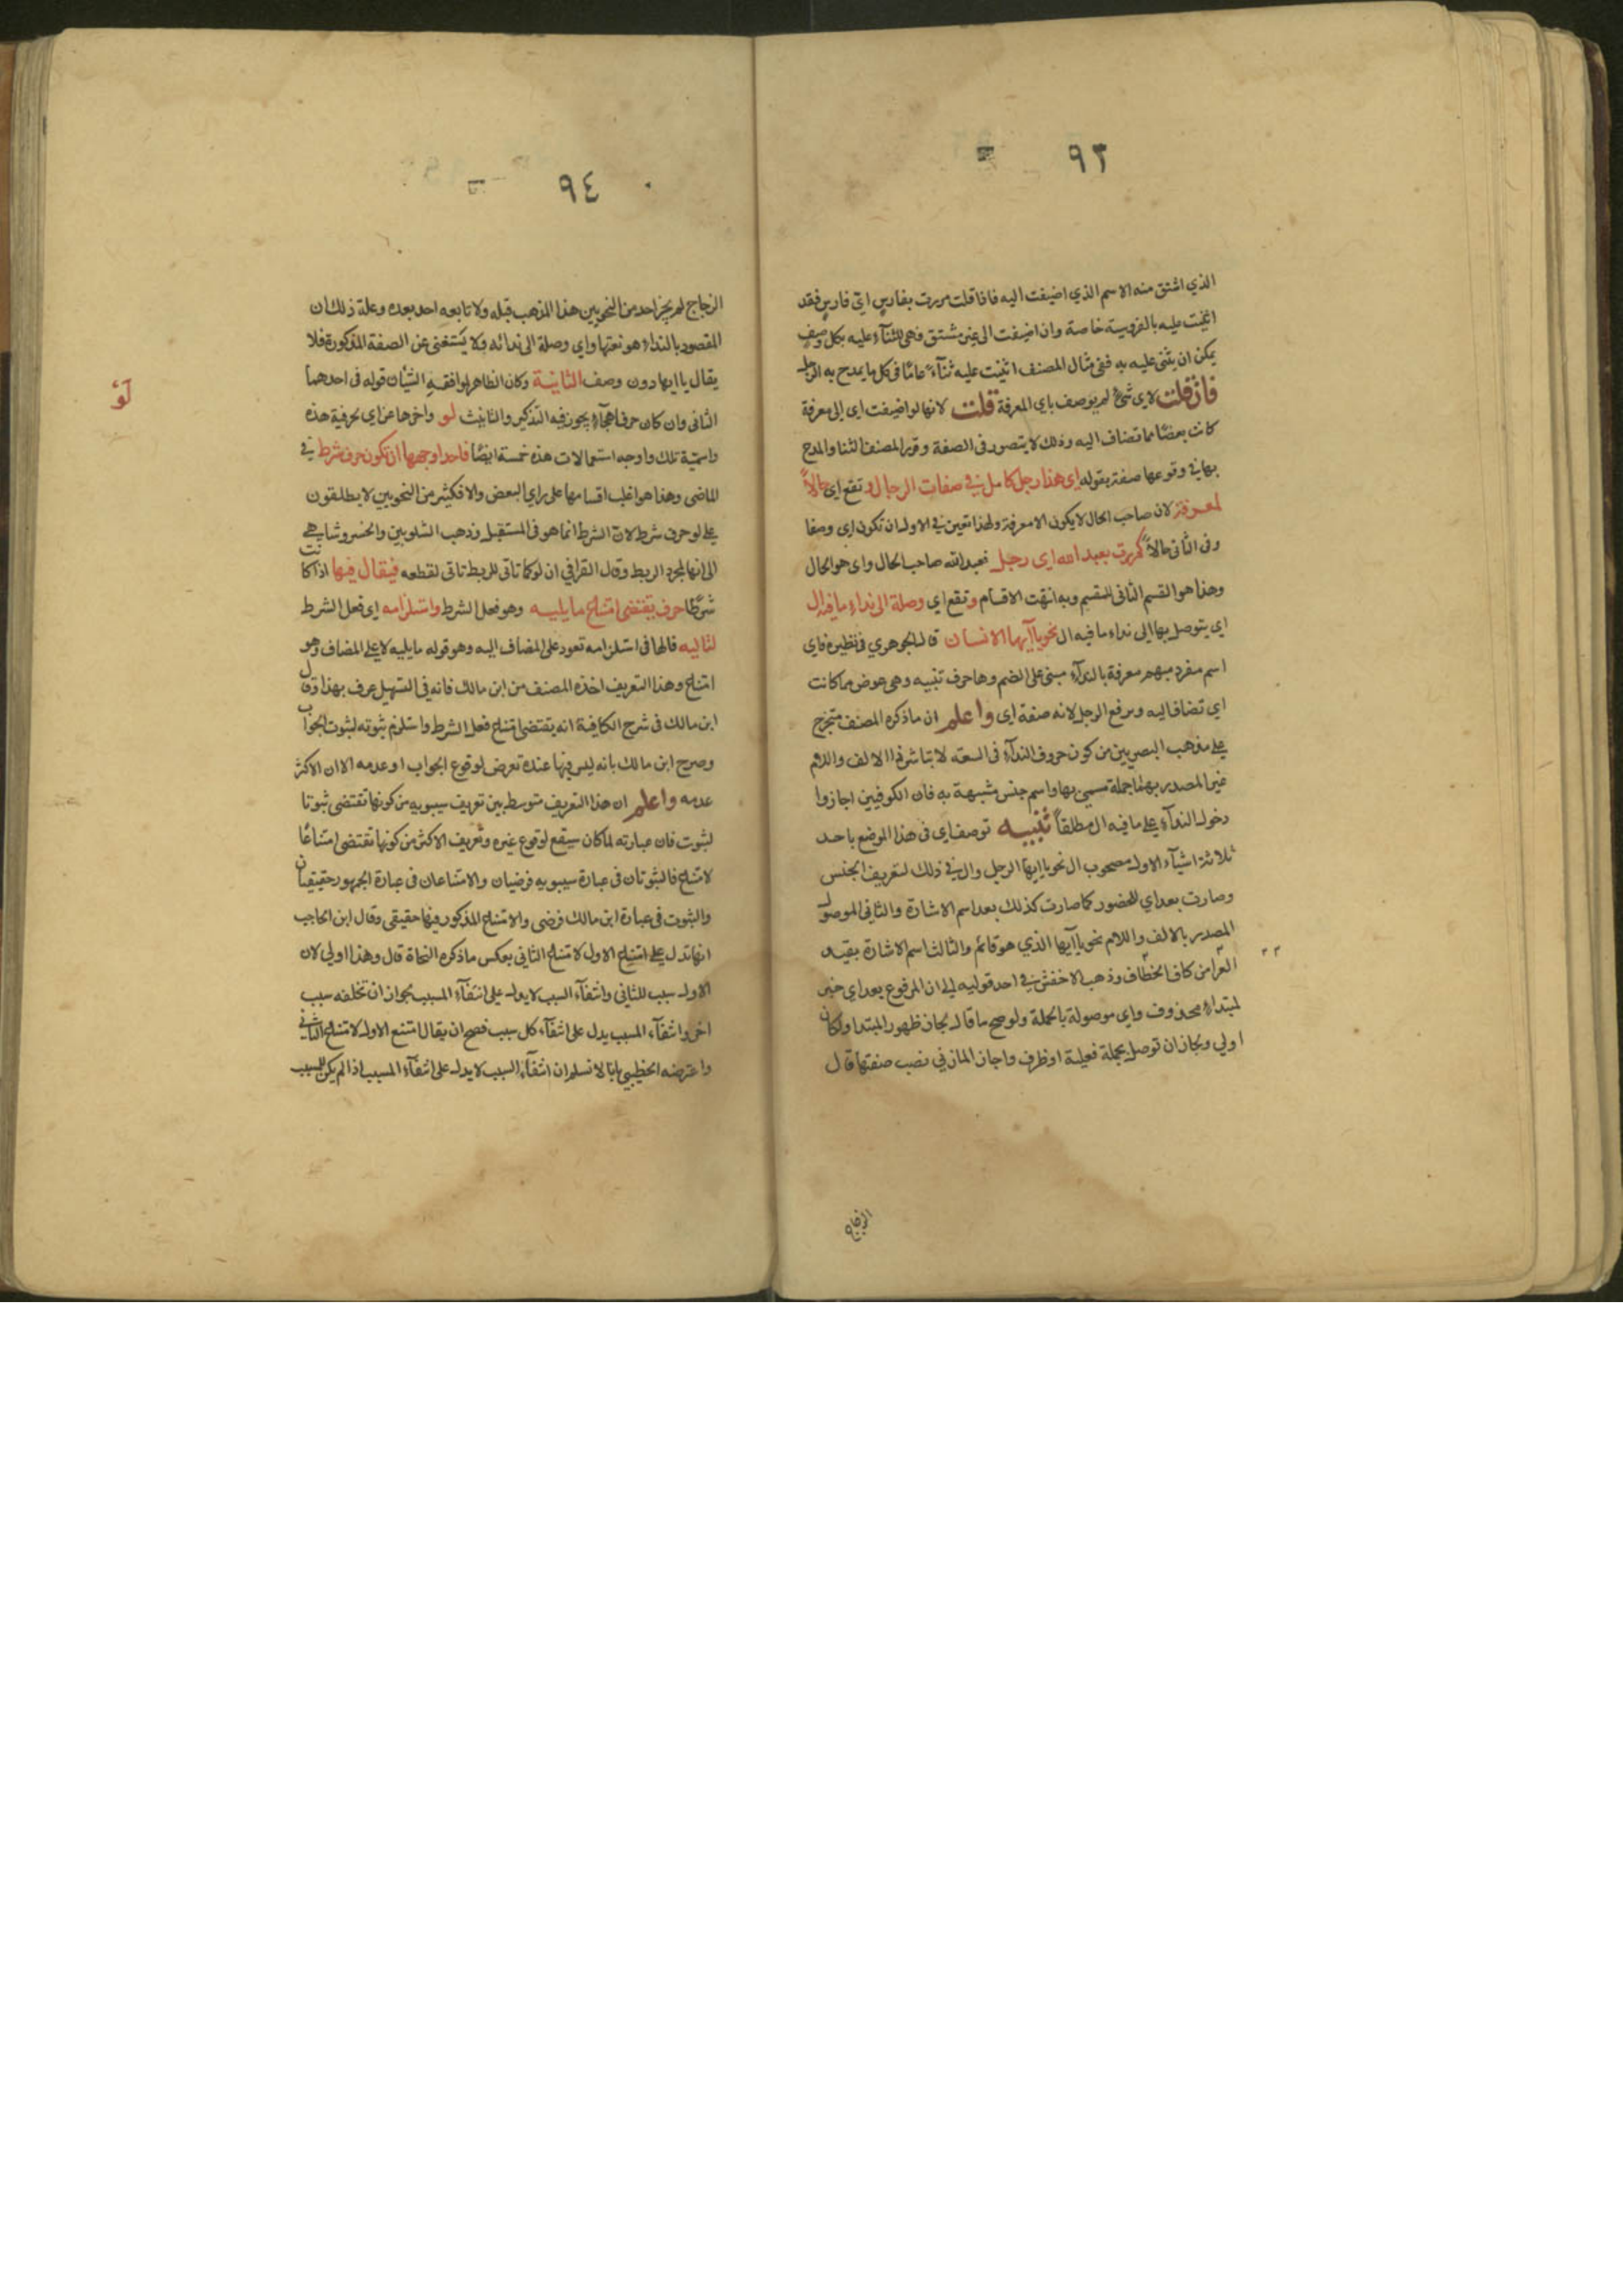 ٩٣
الذي اشتق منه الاسم الذي اضيفت اليه فاذا قلت مررت بفارس اي فارس فقد
اثنيت عليه بالفروسية خاصة وان اضيفت الى غير مشتق فهي للثنآء عليه بكل وصف
يمكن ان يثنى عليه به ففي مثال المصنف اثنيت عليه ثنآء عامّا في كل ما يمدح به الرجل
فان قلت لاي شئ لم يوصف باي المعرفة قلت لانها لو اضيفت اي الى معرفة
كانت بعضا مما تضاف اليه وذلك لا يتصور في الصفة وقرر المصنف الثنا والمدح
بها في وقوعها صفة بقوله اي هذا رجل كامل في صفات الرجال و تقع اي حالاً
لمعرفة لان صاحب الحال لا يكون الا معرفة ولهذا تعين في الاول ان تكون اي وصفا
وفي الثاني حالاً كمررت بعبد الله اي رجل فعبد الله صاحب الحال واي هو الحال
وهذا هو القسم الثاني للتقسيم وبه انتهت الاقسام و تقع اي وصلة الى نداء ما فيه ال
اي يتوصل بها الى نداء ما فيه ال نحو يا آيها الانسان قال الجوهري في نظيره فاي
اسم مفرد مبهم معرفة بالندآء مبني على الضم وها حرف تنبيه وهي عوض مما كانت
اي تضاف اليه وترفع الرجل لانه صفة اي واعلم ان ما ذكره المصنف متخرج
على مذهب البصريين من كون حروف الندآء في السعة لا تباشر ذا الالف واللام
غير المصدر بهما جملة تسمى بها واسم جنس مشبهة به فان الكوفيين اجازوا
دخول الندآء على ما فيه ال مطلقاً تنبيه توصف اي في هذا الموضع باحد
ثلاثة اشيآء الاول مصحوب ال نحو يا ايها الرجل وال في ذلك لتعريف الجنس
وصارت بعد اي للحضور كما صارت كذلك بعد اسم الاشارة والثاني الموصول
المصدر بالالف واللام نحو يا آيها الذي هو قائم والثالث اسم الاشارة بقيد
العرا من كاف الخطاف وذهب الاخفش في احد قوليه الى ان المرفوع بعد اي خبر
لمبتداء محذوف واي موصولة بالجملة ولو صح ما قال لجاز ظهور المبتدا ولكان
اولى ولجاز ان توصل بجملة فعلية او ظرف واجاز المازني نصب صفتها قال
الزجاج
٩٤
الزجاج لم يجز احد من النحويين هذا المذهب قبله ولا تابعه احد بعده وعلة ذلك ان
المقصود بالنداء هو نعتها واي وصلة الى ندائه ولا يستغنى عن الصفة المذكورة فلا
يقال يا ايها دون وصف الثانية وكان الظاهر لوافقه الشيان قوله في احدهما
الثاني وان كان حرف هجآء يجوز فيه التذكير والتانيث لو واخرها عن اي لحرفية هذه
واسمية تلك واوجه استعمالات هذه خمسة ايضا فاحد اوجهها ان تكون حرف شرط في
الماضي وهذا هو اغلب اقسامها على راي البعض والا فكثير من النحويين لا يطلقون
على لو حرف شرط لان الشرط انما هو في المستقبل وذهب الشلوبين والخسروشاهي
الى انها لمجرد الربط وقال القرافي ان لو كما تاتي للربط تاتي لقطعه فيقال فيها اذا كانت
شرطا حرف يقتضي امتناع ما يليه وهو فعل الشرط واستلزامه اي فعل الشرط
لتاليه فالها في استلزامه تعود على المضاف اليه وهو قوله ما يليه لا على المضاف وهو
امتناع وهذا التعريف اخذه المصنف من ابن مالك فانه في التسهيل عرف بهذا وقال
ابن مالك في شرح الكافية انه يقتضي امتناع فعل الشرط واستلزم ثبوته لثبوت الجواب
وصرح ابن مالك بانه ليس فيها عنده تعرض لوقوع الجواب او عدمه الا ان الاكثر
عدمه واعلم ان هذا التعريف متوسط بين تعريف سيبويه من كونها تقتضي ثبوتا
لثبوت فان عبارته لما كان سيقع لوقوع غيره وتعريف الاكثر من كونها تقتضي امتناعًا
لامتناع فالثبوتان في عبارة سيبويه فرضيان والامتناعان في عبارة الجمهور حقيقيان
والثبوت في عبارة ابن مالك فرضي والامتناع المذكور فيها حقيقي وقال ابن الحاجب
انها تدل على امتناع الاول لامتناع الثاني بعكس ما ذكره النحاة قال وهذا اولى لان
الاول سبب للثاني وانتفآء السبب لا يدل على انتفآء المسبب لجواز ان تخلفه سبب
اخر وانتفآء المسبب يدل على انتفآء كل سبب فصح ان يقال امتنع الاول لامتناع الثاني
واعترضه الخطيبي بانا لا نسلم ان انتفآء السبب لا يدل على انتفآء المسبب اذا لم يكن للمسبب
لو